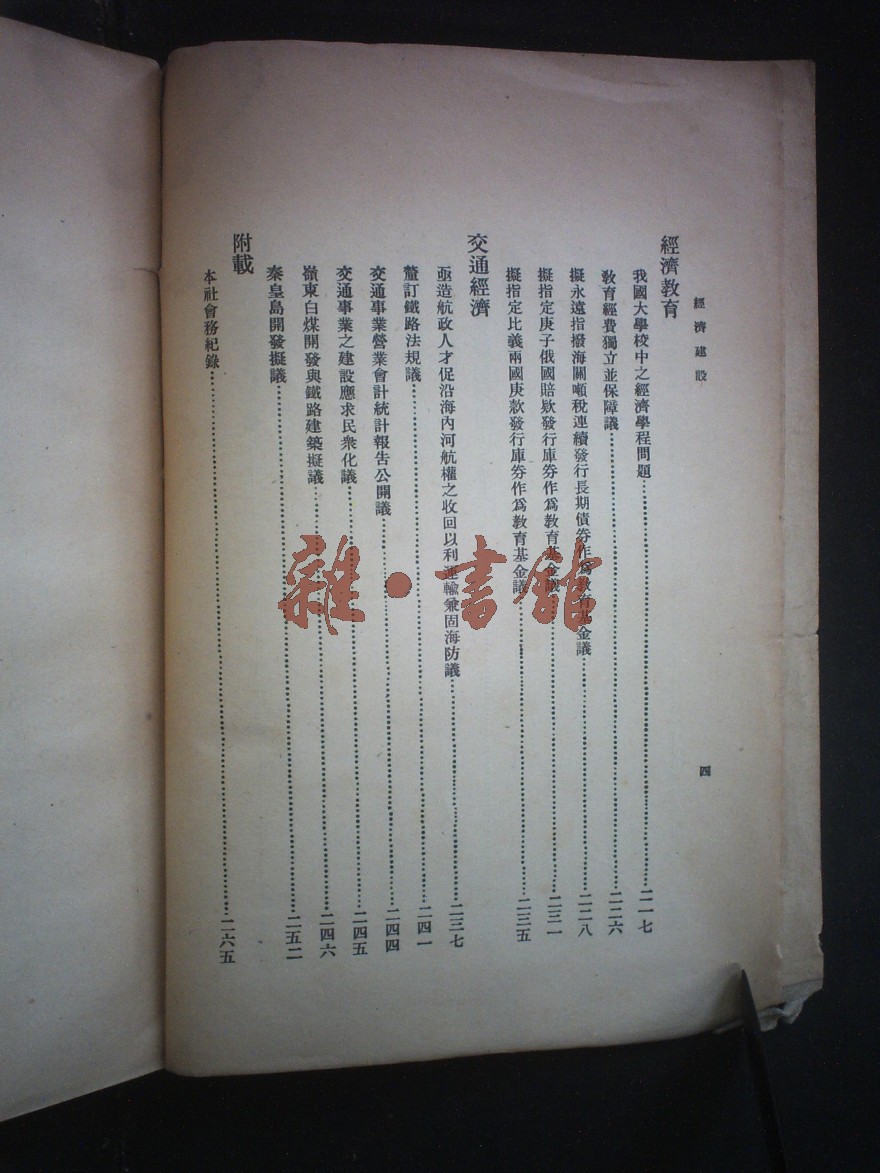 經濟建設
四
經濟教育
我國大學校中之經濟學程問題……二一七
教育經費獨立並保障議……二二六
擬永遠指撥海關噸稅連續發行長期債券作爲教育基金議……二二八
擬指定庚子俄國賠欵發行庫券作爲教育基金議……二三一
擬指定比義兩國庚欵發行庫券作爲教育基金議……二三五
交通經濟
亟造航政人才促沿海內河航權之收回以利運輸兼固海防議……二三七
釐訂鐵路法規議……二四一
交通事業營業會計統計報告公開議……二四四
交通事業之建設應求民衆化議……二四五
嶺東白煤開發與鐵路建築擬議……二四六
秦皇島開發擬議……二五二
附載
本社會務紀錄……二六五
雜·書館